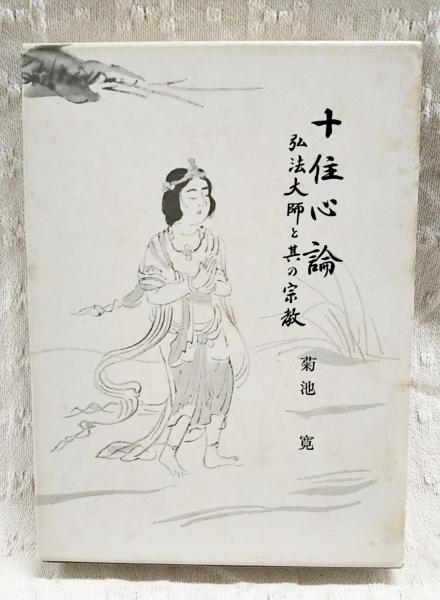 十住心論
弘法大師と其の宗教
菊池寛